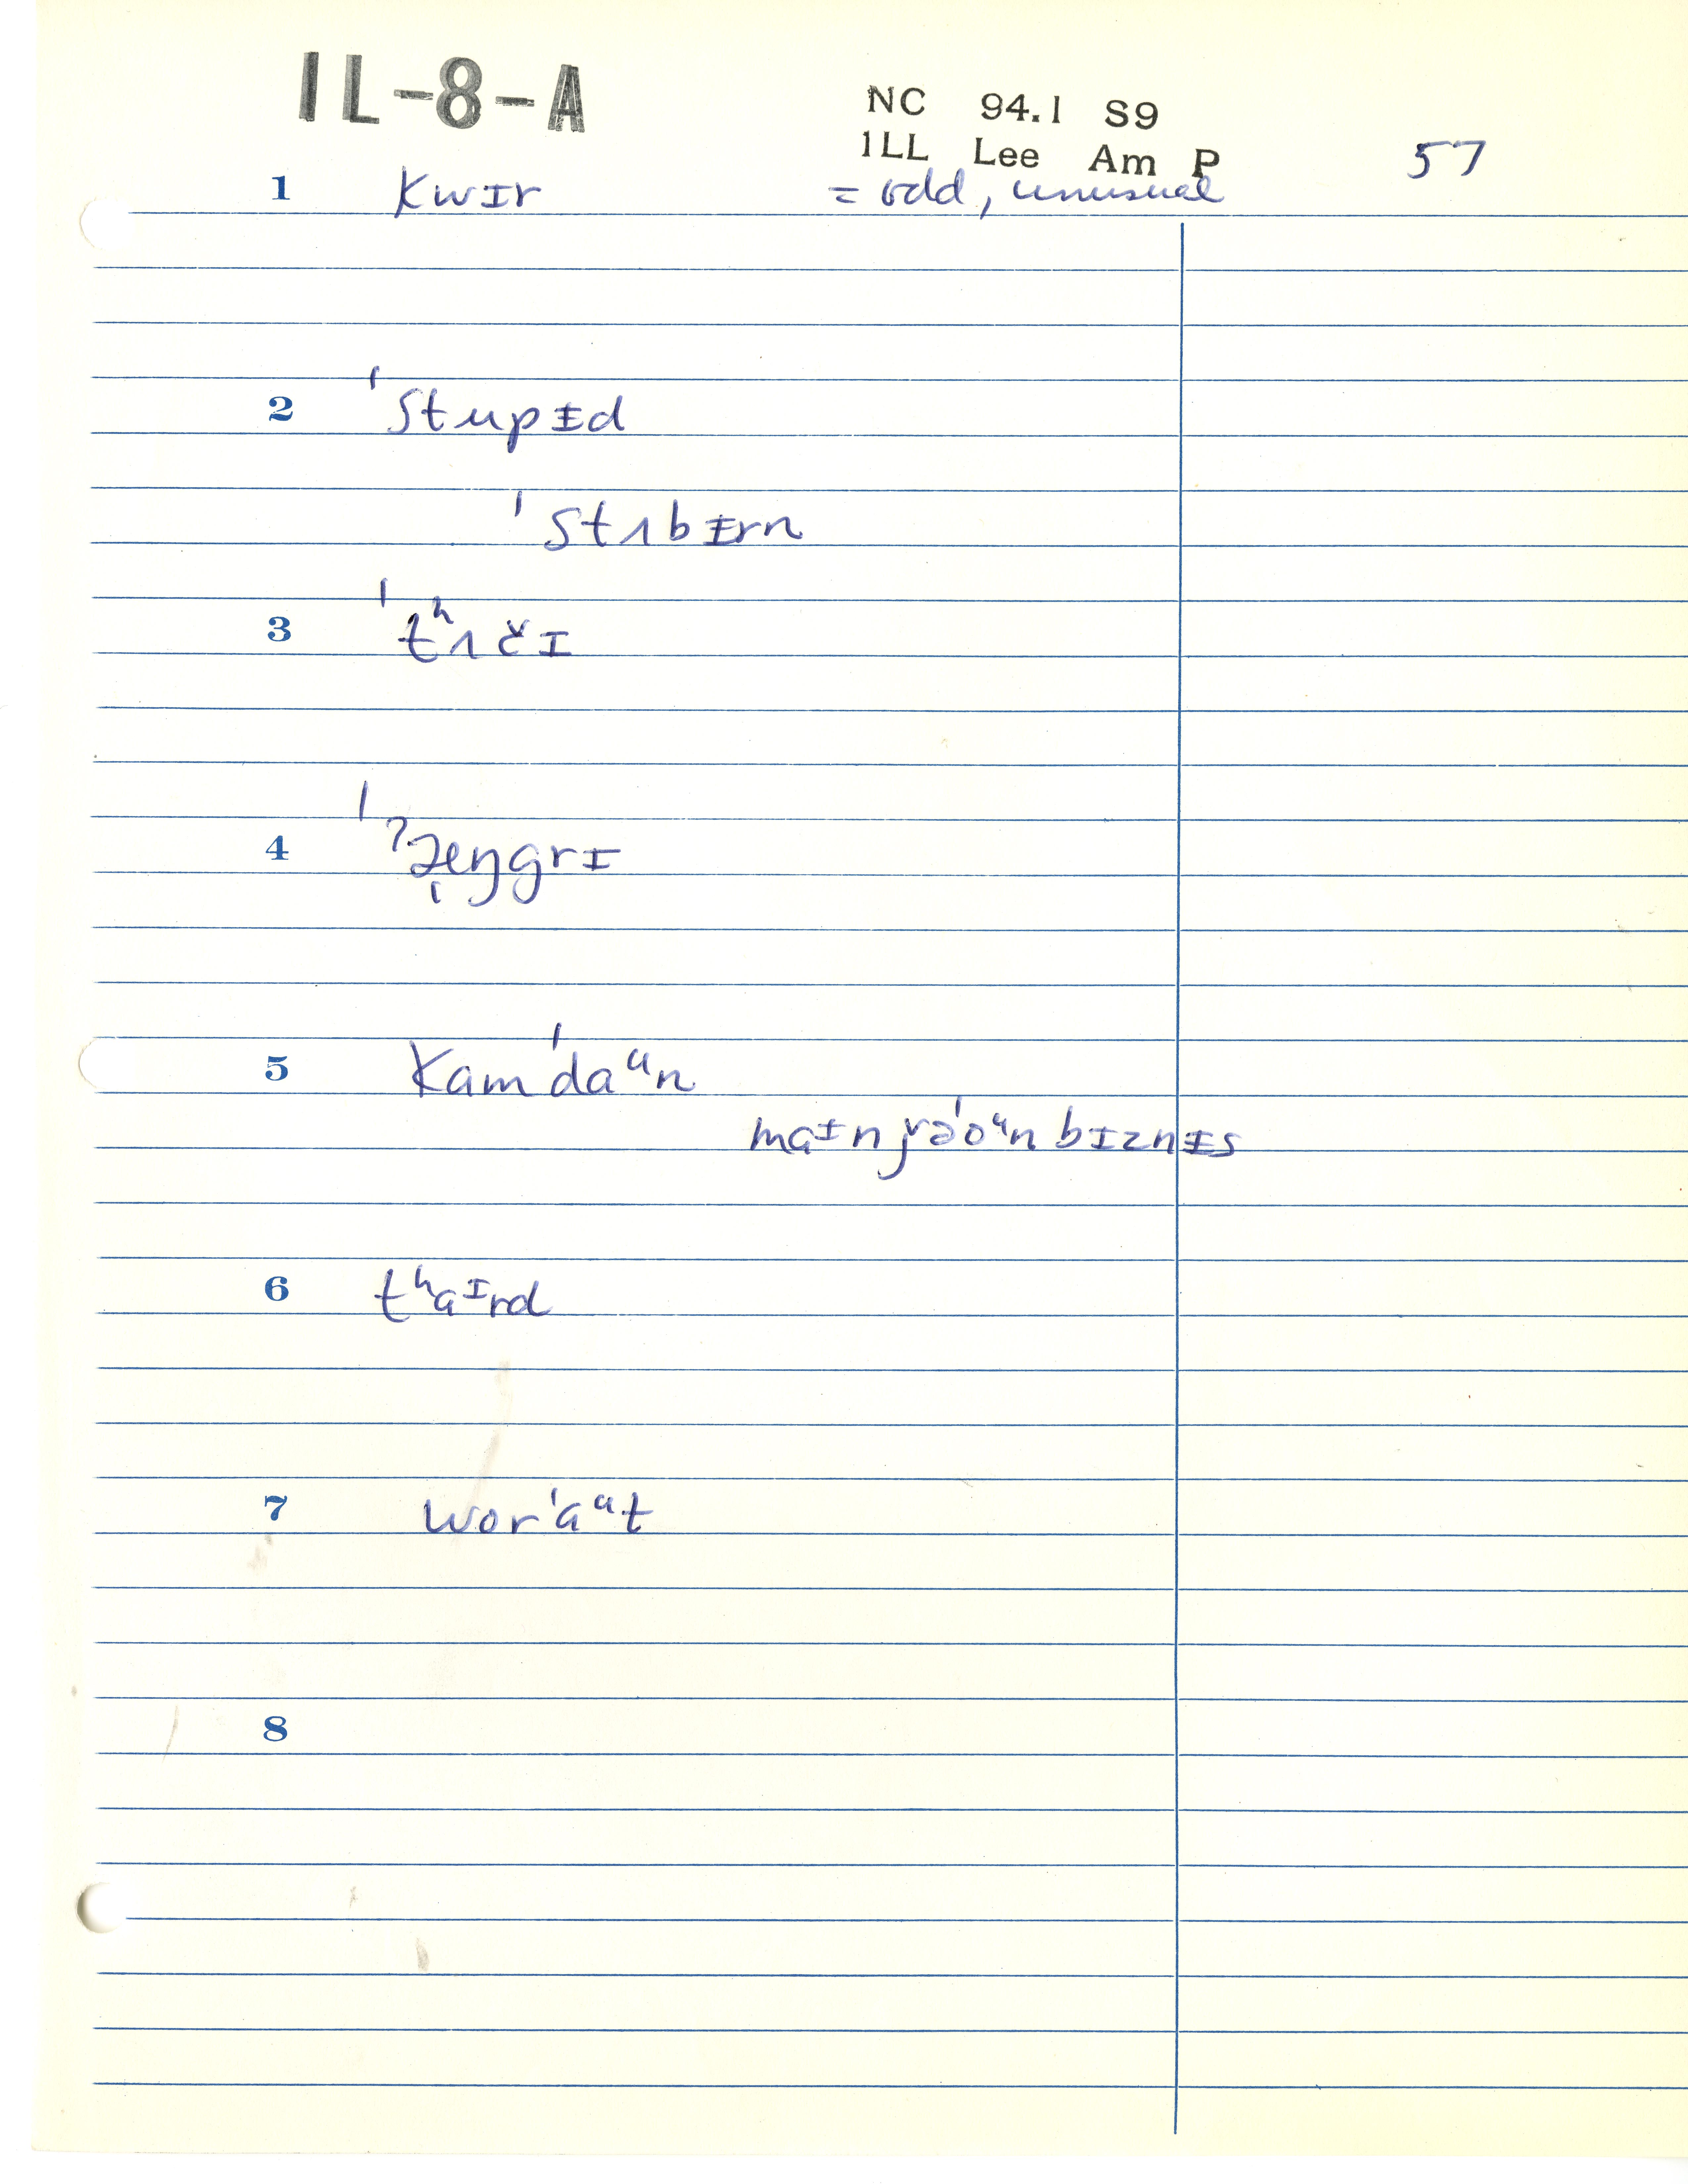 IL-8-A
NC 94.1 S9
ILL Lee Am P
57
1 kwɪr = odd, unusual
2 ˈstupɪ̵d
ˈstʌbɪ̵rn
3 ˈtʰʌčɪ
4 ˈˀæ̩ŋgrɪ
5 kamˈdaᵘn
maɪn jɚˈoᵘn bɪznɪ̵s
6 tʰaᶦrd
7 worˈaᵘt
8